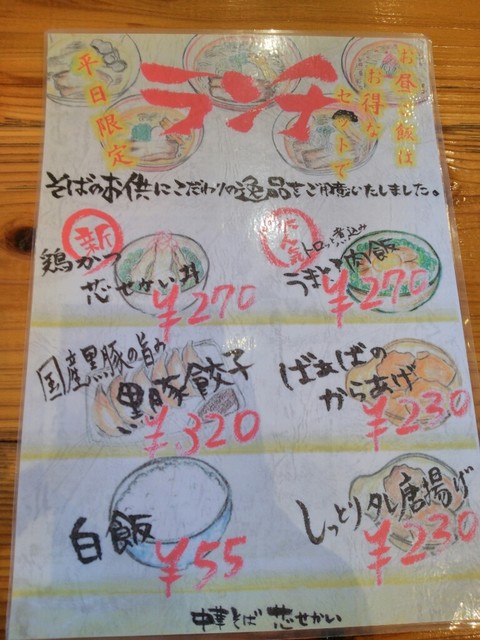 お昼ご飯は
お得な
セットで
ランチ
平日限定
そばのお供にこだわりの逸品をご用意いたしました。
新
鶏かつ
芯せかい丼
¥270
人気
トロッと煮込み
うまい肉飯
¥270
国産黒豚の旨み
黒豚餃子
¥320
ばぁばの
からあげ
¥230
白飯
¥55
しっとりタレ唐揚げ
¥230
中華そば 芯せかい